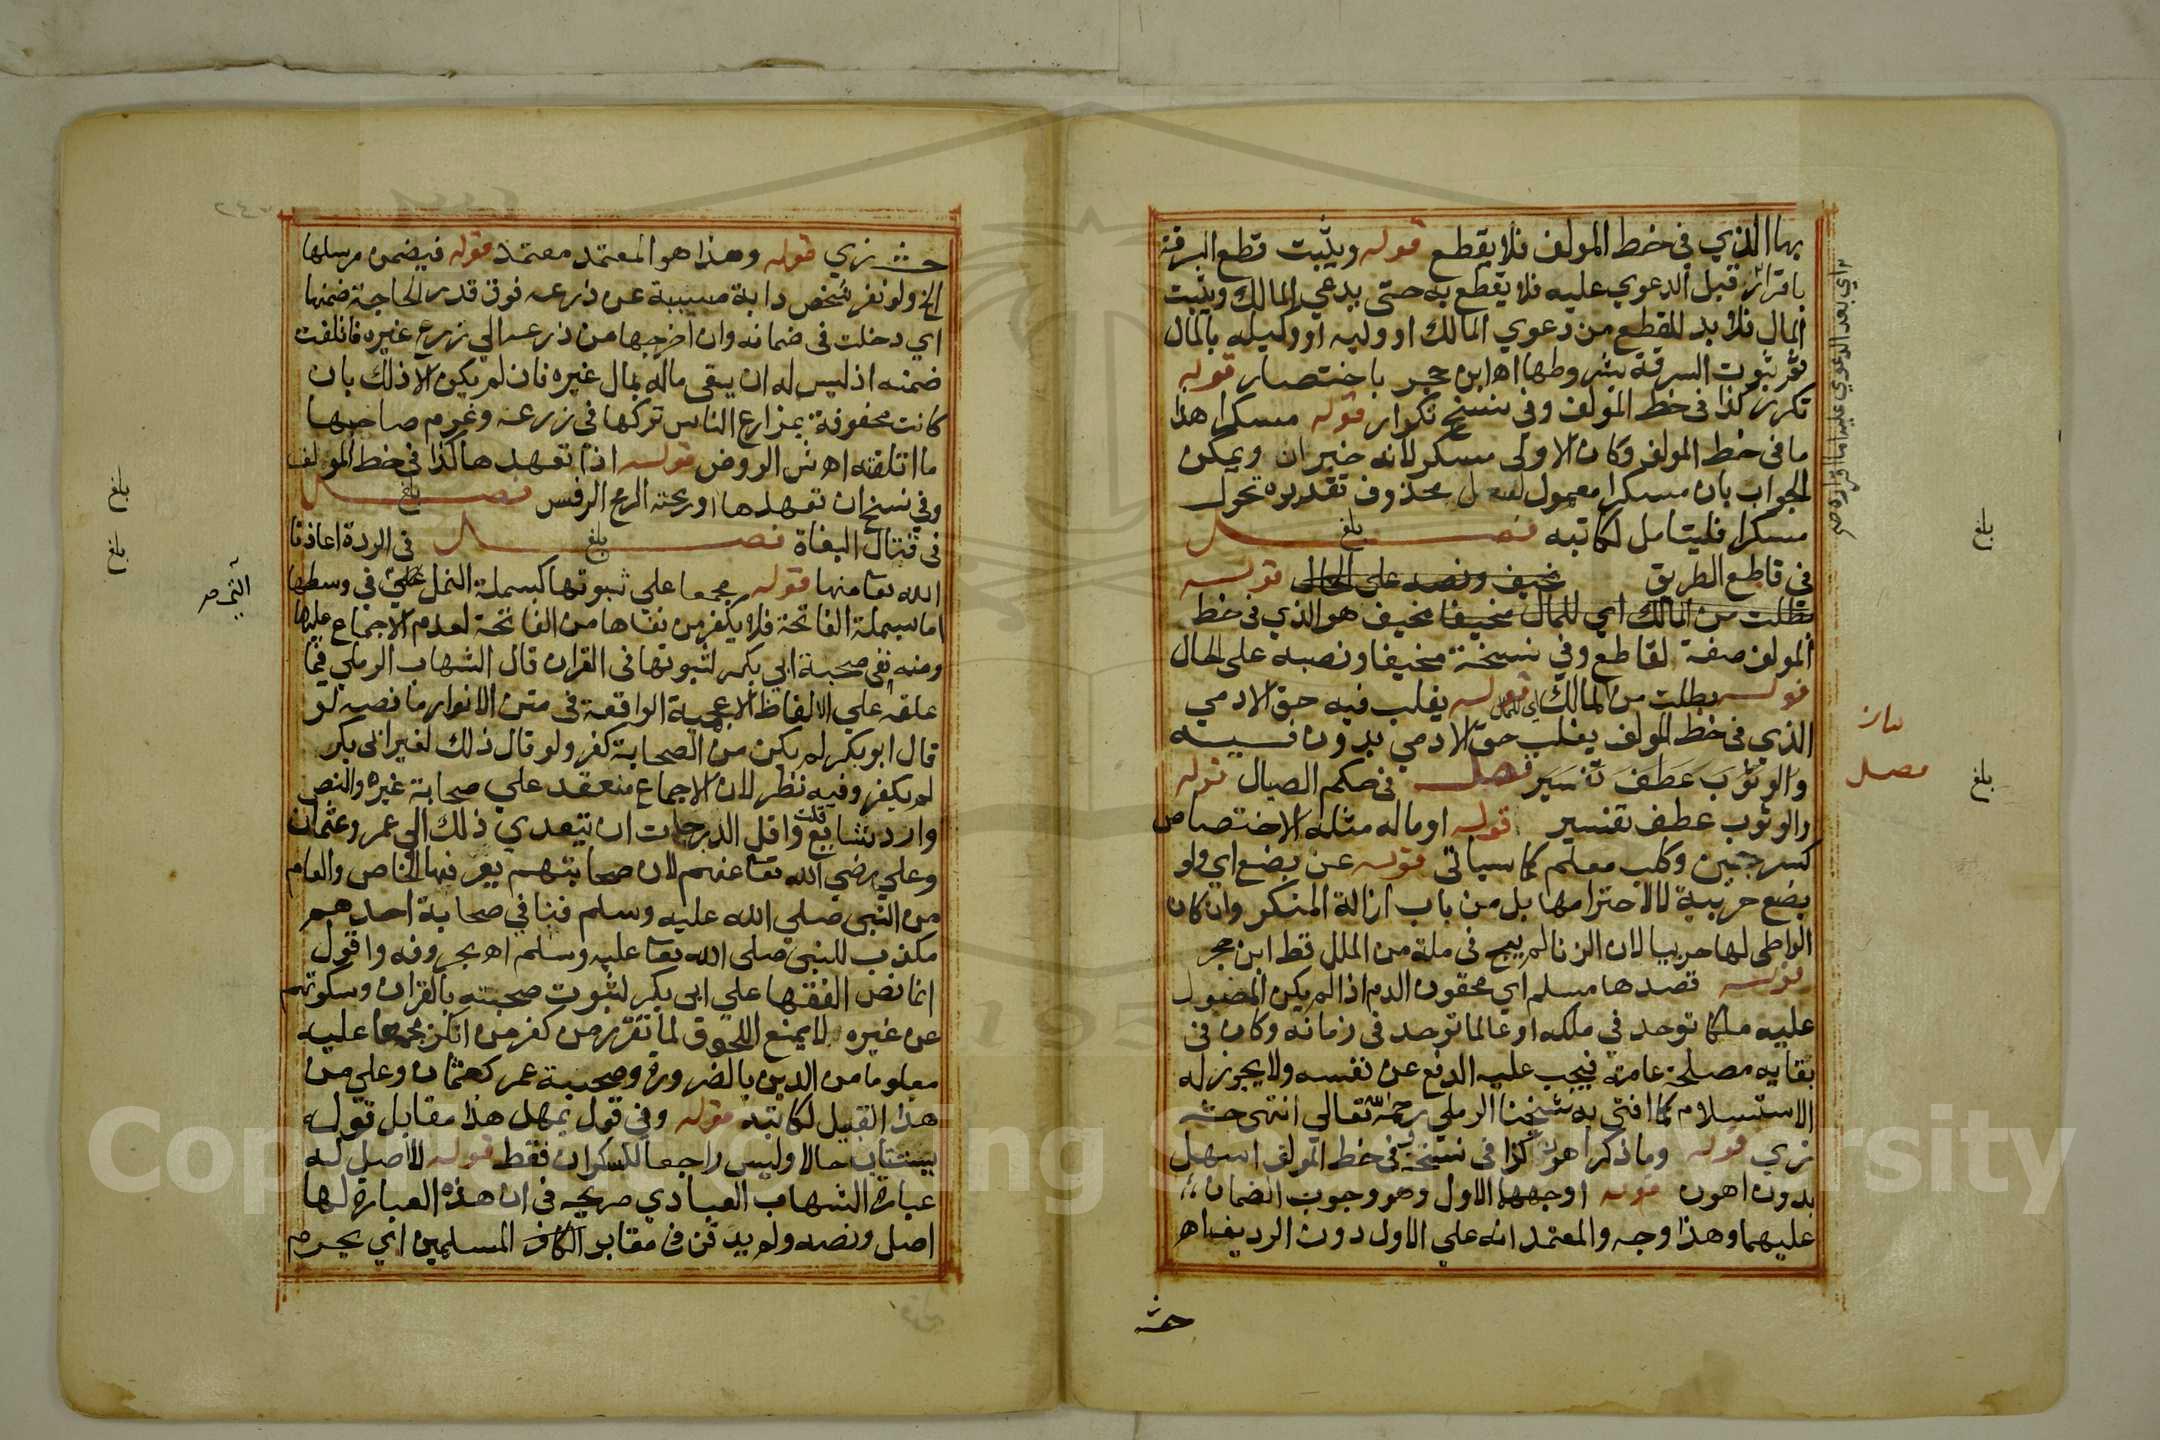 بها الذي في خط المولف فلا يقطع قوله ويثبت قطع السرقة
باقراره قبل الدعوي عليه فلا يقطع به حتى يدعي المالك ويثبت
المال فلا بد للقطع من دعوي المالك او وليه او وكيله بالمال
ثم ثبوت السرقة بشروطها اه ابن حجر باختصار قوله
تكرر كذا في خط المولف وفي نسخ تكرار قوله مسكرا هذا
ما في خط المولف وكان الاولى مسكر لانه خبر ان ويمكن
الجواب بان مسكرا معمول لفعل محذوف تقديره تحول
مسكرا فليتامل لكاتبه فصل بلغ
في قاطع الطريق مخيف ونصبه على الحال قوله
بطلت من المالك اي للمال مخيفا مخيف هو الذي في خط
المولف صفة لقاطع وفي نسخة مخيفا ونصبه على الحال
قوله بطلت من المالك اي للمال قوله يغلب فيه حق الادمي
الذي في خط المولف يغلب حق الادمي بدون فيه
والوثوب عطف تفسير فصل في حكم الصيال قوله
والوثوب عطف تفسير قوله او ماله مثله الاختصاص
كسرجين وكلب معلم كما سياتي قوله عن بضع اي ولو
بضع حربية لا لاحترامها بل من باب ازالة المنكر وان كان
الواطي لها حربيا لان الزنا لم يبح في ملة من الملل قط ابن حجر
قوله قصدها مسلم اي محقون الدم اذا لم يكن المصول
عليه ملكا توحد في ملكه او عالما توحد في زمانه وكان في
بقايه مصلحة عامة فيجب عليه الدفع عن نفسه ولا يجوز له
الاستسلام كما افتى به شيخنا الرملي رحمه الله تعالي انتهى حشـ
زي قوله وما ذكر اهون كذا في نسخة وفي خط المولف اسهل
بدون اهون قوله اوجهها الاول وهو وجوب الضمان
عليهما وهذا وجه والمعتمد انه علي الاول دون الرديف اه
حشـ
اي بعد الدعوي عليه اما اقراره صح
بلغ
فصل
بلغ
حشـ زي قوله وهذا هو المعتمد معتمد قوله فيضمن مرسلها
الخ ولو نفر شخص دابة مسيبة عن زرعه فوق قدر الحاجة ضمنها
اي دخلت في ضمانه وان اخرجها من زرعه الي زرع غيره فاتلفت
ضمنه اذ ليس له ان يبقي ماله بمال غيره فان لم يكن الا ذلك بان
كانت محفوفة بمزارع الناس تركها في زرعه وغرم صاحبها
ما اتلفته اه ش الروض قوله اذا تعهدها كذا في خط المولف
وفي نسخ ان تعهدها او رمحته الرمح الرفس فصل بلغ
في قتال البغاة فصل بلغ في الردة اعاذنا
الله تعا منها قوله مجمعا علي ثبوتها كبسملة النمل في وسطها
اما بسملة الفاتحة فلا يكفر من نفاها من الفاتحة لعدم الاجماع عليها
ومنه نفي صحبة ابي بكر لثبوتها في القران قال الشهاب الرملي فيما
علقه علي الالفاظ الاعجمية الواقعة في متن الانوار ما نصه لو
قال ابو بكر لم يكن من الصحابة كفر ولو قال ذلك لغير ابي بكر
لم يكفر وفيه نظر لان الاجماع منعقد علي صحابة غيره والنص
وارد شايع قلت واقل الدرجات ان يتعدي ذلك الي عمر وعثمان
وعلي رضي الله تعا عنهم لان صحابتهم يعرفها الخاص والعام
من النبي صلي الله عليه وسلم فنافي صحابة احدهم
مكذب للنبي صلى الله تعا عليه وسلم اه بحروفه واقول
انما نص الفقها علي ابي بكر لثبوت صحبته بالقران وسكوتهم
عن غيره لا يمنع اللحوق لما تقرر من كفر من انكر مجمعا عليه
معلوما من الدين بالضرورة وصحبة عمر كعثمان وعلي من
هذا القبيل لكاتبه قوله وفي قول يمهل هذا مقابل قوله
يستتاب حالا وليس راجعا للسكران فقط قوله لا اصل له
عبارة الشهاب العبادي صريحه في ان هذه العبارة لها
اصل ونصه ولم يدفن في مقابر الكافر المسلمين اي يحرم
بلغ
بلغ
التي صح